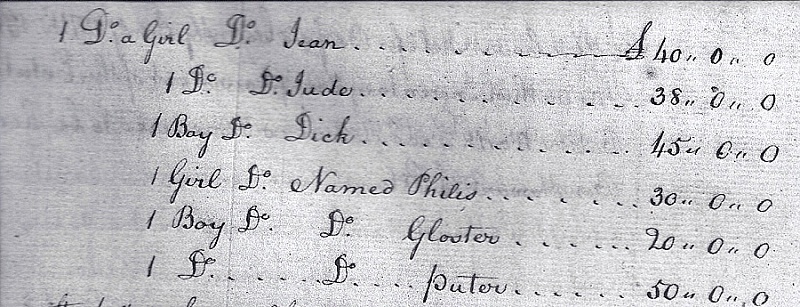 1 Do. a Girl Do. Jean . . . . . . . £ 40 ,, 0 ,, 0
1 Do. Do. Jude . . . . . . . . . . . . . 38 ,, 0 ,, 0
1 Boy Do. Dick . . . . . . . . . . . . 45 ,, 0 ,, 0
1 Girl Do. Named Philis . . . . . . . 30 ,, 0 ,, 0
1 Boy Do. Do. Gloster . . . . . 20 ,, 0 ,, 0
1 Do. . . . . . Do. . . . puter . . . . . . 50 ,, 0 ,, 0